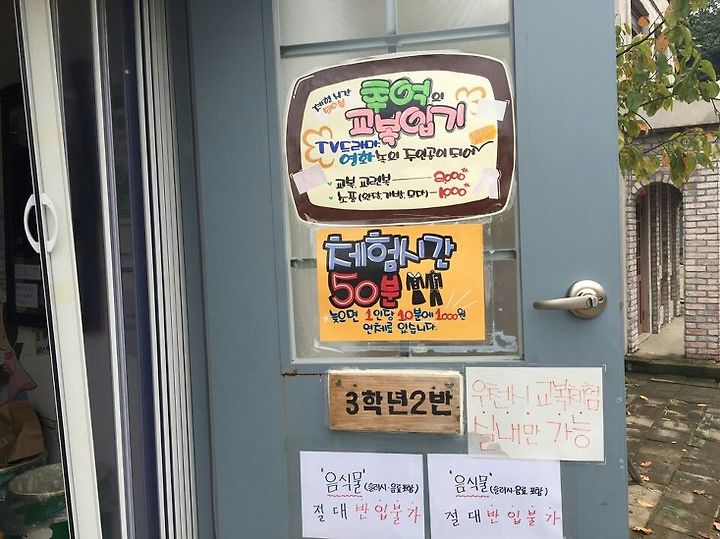 체험시간
50분
추억의
교복입기
TV드라마,
영화 속의 주인공이 되어
교복, 교련복 2000원
소품(완장, 가방, 모자) 1000원
체험시간
50분
늦으면 1인당 10분에 1000원
연체료 있습니다.
3학년2반
우천시 교복체험
실내만 가능
'음식물' (슬러시·음료 포함)
절대 반입불가
'음식물' (슬러시·음료 포함)
절대 반입불가